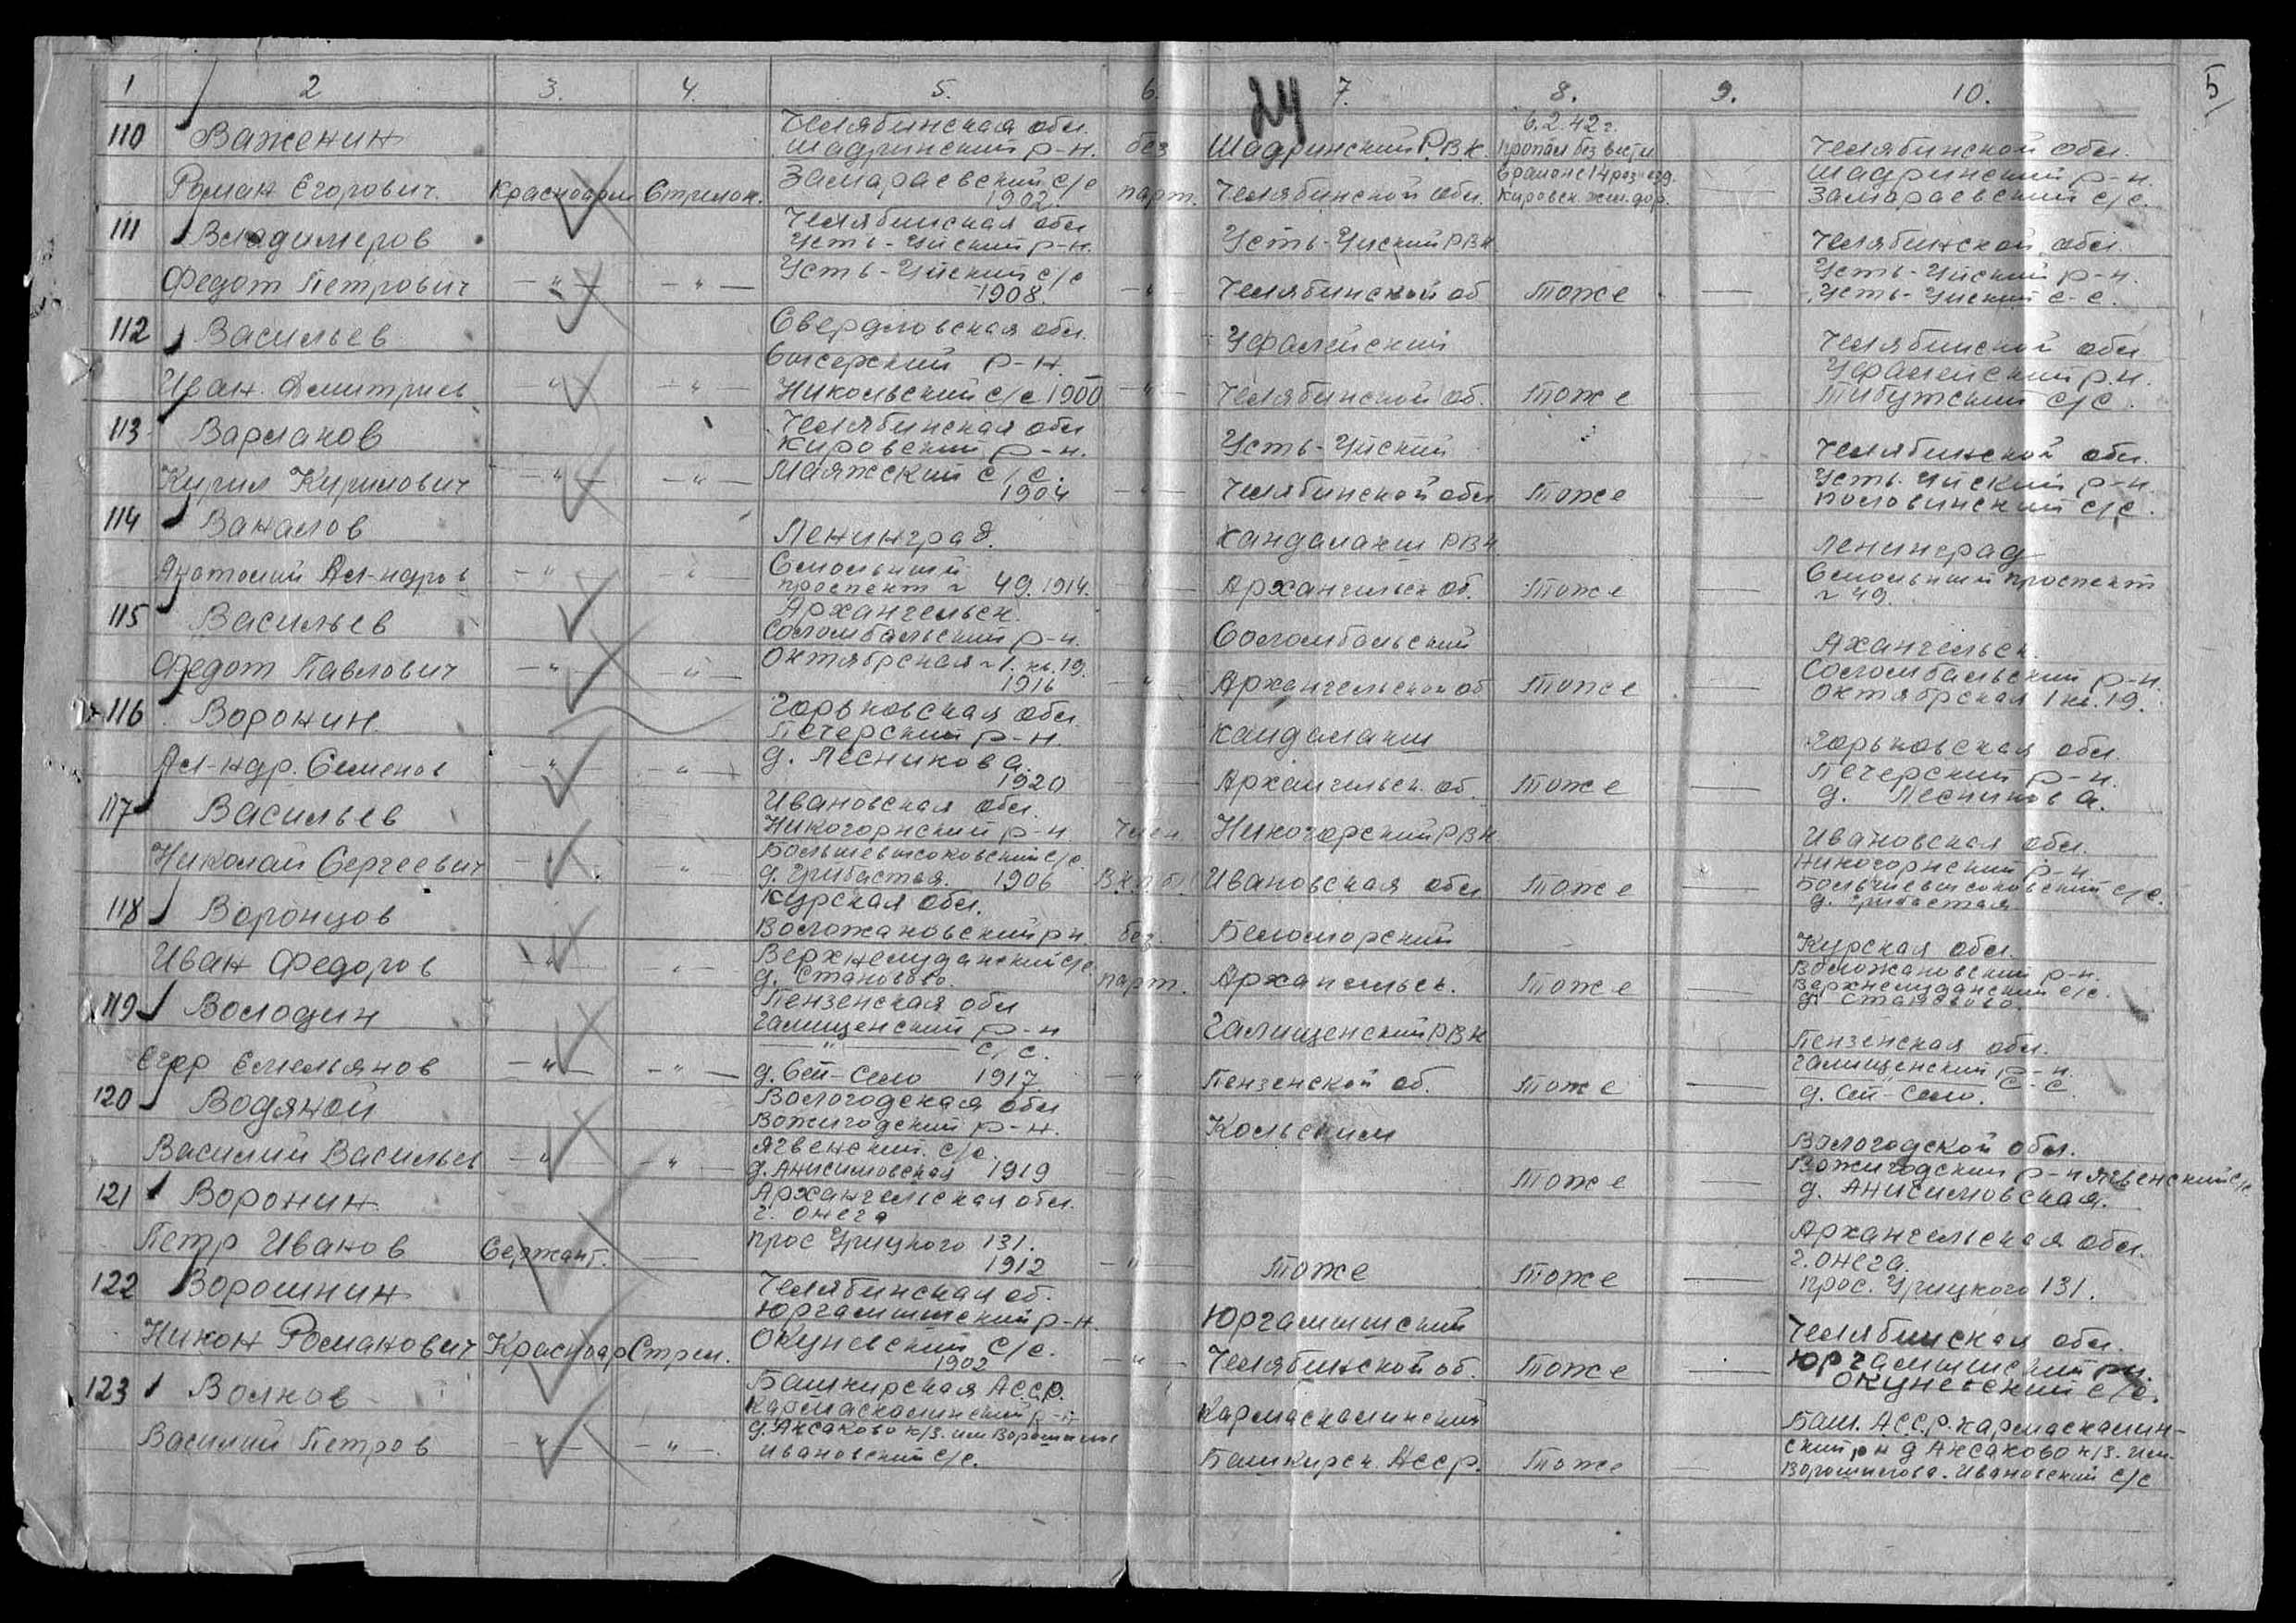 1 2 3. 4. 5. 6. 7. 8. 9. 10.
24
5
110 Важенин
Роман Егорович. Красноарм Стрелок.
Челябинская обл.
Шадринский р-н.
Замараевский с/с
1902.
без
парт.
Шадринский РВК.
Челябинской обл.
6.2.42г.
Пропал без вести
в районе 14 раз'езд.
Кировск. жел. дор.
—
Челябинской обл.
Шадринский р-н.
Замараевский с/с.
111 Владимеров
Федот Петрович — " — — " —
Челябинская обл
Усть-Уйский р-н.
Усть-Уйский с/с
1908.
— " —
Усть-Уйский РВК
Челябинской об
Тоже
—
Челябинской обл.
Усть-Уйский р-н.
Усть-Уйский с-с.
112 Васильев
Иван. Дмитриев — " — — " —
Свердловская обл.
Сысерский р-н
Никольский с/с 1900
— " —
Уфалейский
Челябинской об.
Тоже
—
Челябинской обл
Уфалейский р.н.
с/с.
113 Варлаков
Кирил Кирилович — " — — " —
Челябинская обл
Кировский р-н.
Маяжский с/с.
1904
— " —
Усть-Уйский
Челябинской обл
Тоже
—
Челябинской обл.
Усть-Уйский р-н.
Половинский с/с.
114 Ваналов
Анатолий Ал-ндров — " — — " —
Ленинград.
Смольный
проспект 49. 1914.
Кандалакш РВК
Архангельск об.
Тоже
—
Ленинград
Смольный проспект
49.
115 Васильев
Федот Павлович — " — — " —
Архангельск.
Соломбальский р-н.
Октябрская 1. кв. 19.
1916
— " —
Соломбальский
Архангельской об
Тоже
—
Ахангельск.
Соломбальский р-н.
Октябрская 1 кв. 19.
116 Воронин.
Ал-ндр. Семенов — " — — " —
Горьковская обл.
Печерский р-н.
д. Лесникова.
1920
— " —
Кандалакш
Архангельск. об.
Тоже
—
Горьковская обл.
Печерский р-н.
д. Лесникова.
117 Васильев
Николай Сергеевич — " — "
Ивановская обл.
Никогорнский р-н
Большевысоковский с/с
д. Грибастая. 1906
Член
В.К.П.б.
Никогорский РВК
Ивановская обл
Тоже
—
Ивановская обл.
Никогорнский р-н
Большевысоковский с/с.
д. Грибастая
118 Воронцов
Иван Федоров — " — — " —
Курская обл.
Воложановский рн.
Верхнелуданский с/с
д. Становово.
без.
парт.
Беломорский
Архангельск.
Тоже
—
Курская обл.
Воложановский р-н.
Верхнелуданский с/с.
д. Становово.
119 Володин
Егор Емельянов — " — — " —
Пензенская обл
Галищенский р-н
— " — с/с.
д. Сей-Село 1917
— " —
Галищенский РВК
Пензенской об.
Тоже
—
Пензенская обл.
Галищенский р-н.
— " — с-с.
д. Сей-Село.
120 Водяной
Василий Васильев — " — — " —
Вологодская обл
Вожигодский р-н.
Ягвенский. с/с.
д. Анисимовская 1919
— " —
Кольским
Тоже
—
Вологодской обл.
Вожигодский р-н Ягвенский с/с
д. Анисимовская.
121 Воронин
Петр Иванов Сержант. —
Архангельская обл.
г. Онега
прос Урицкого 131.
1912
— " —
Тоже
Тоже
—
Архангельская обл.
г. Онега.
прос. Урицкого 131.
122 Ворошнин
Никон Романович Красноар Стрел.
Челябинская об.
Юргамышский р-н.
Окуневский с/с.
1902
— " —
Юргамышский
Челябинской об.
Тоже
—
Челябинская обл.
Юргамышский рн.
Окуневский с/с.
123 Волков
Василий Петров — " — — " —
Башкирская АССР.
Кармаскалинский р-н
д. Аксаково к/з. им Ворошилов
Ивановский с/с.
Кармаскалинский
Башкирск. АССР.
Тоже
—
Баш. АССР. Кармаскалин-
ский р н д Аксаково к/з. им.
Ворошилова. Ивановский с/с